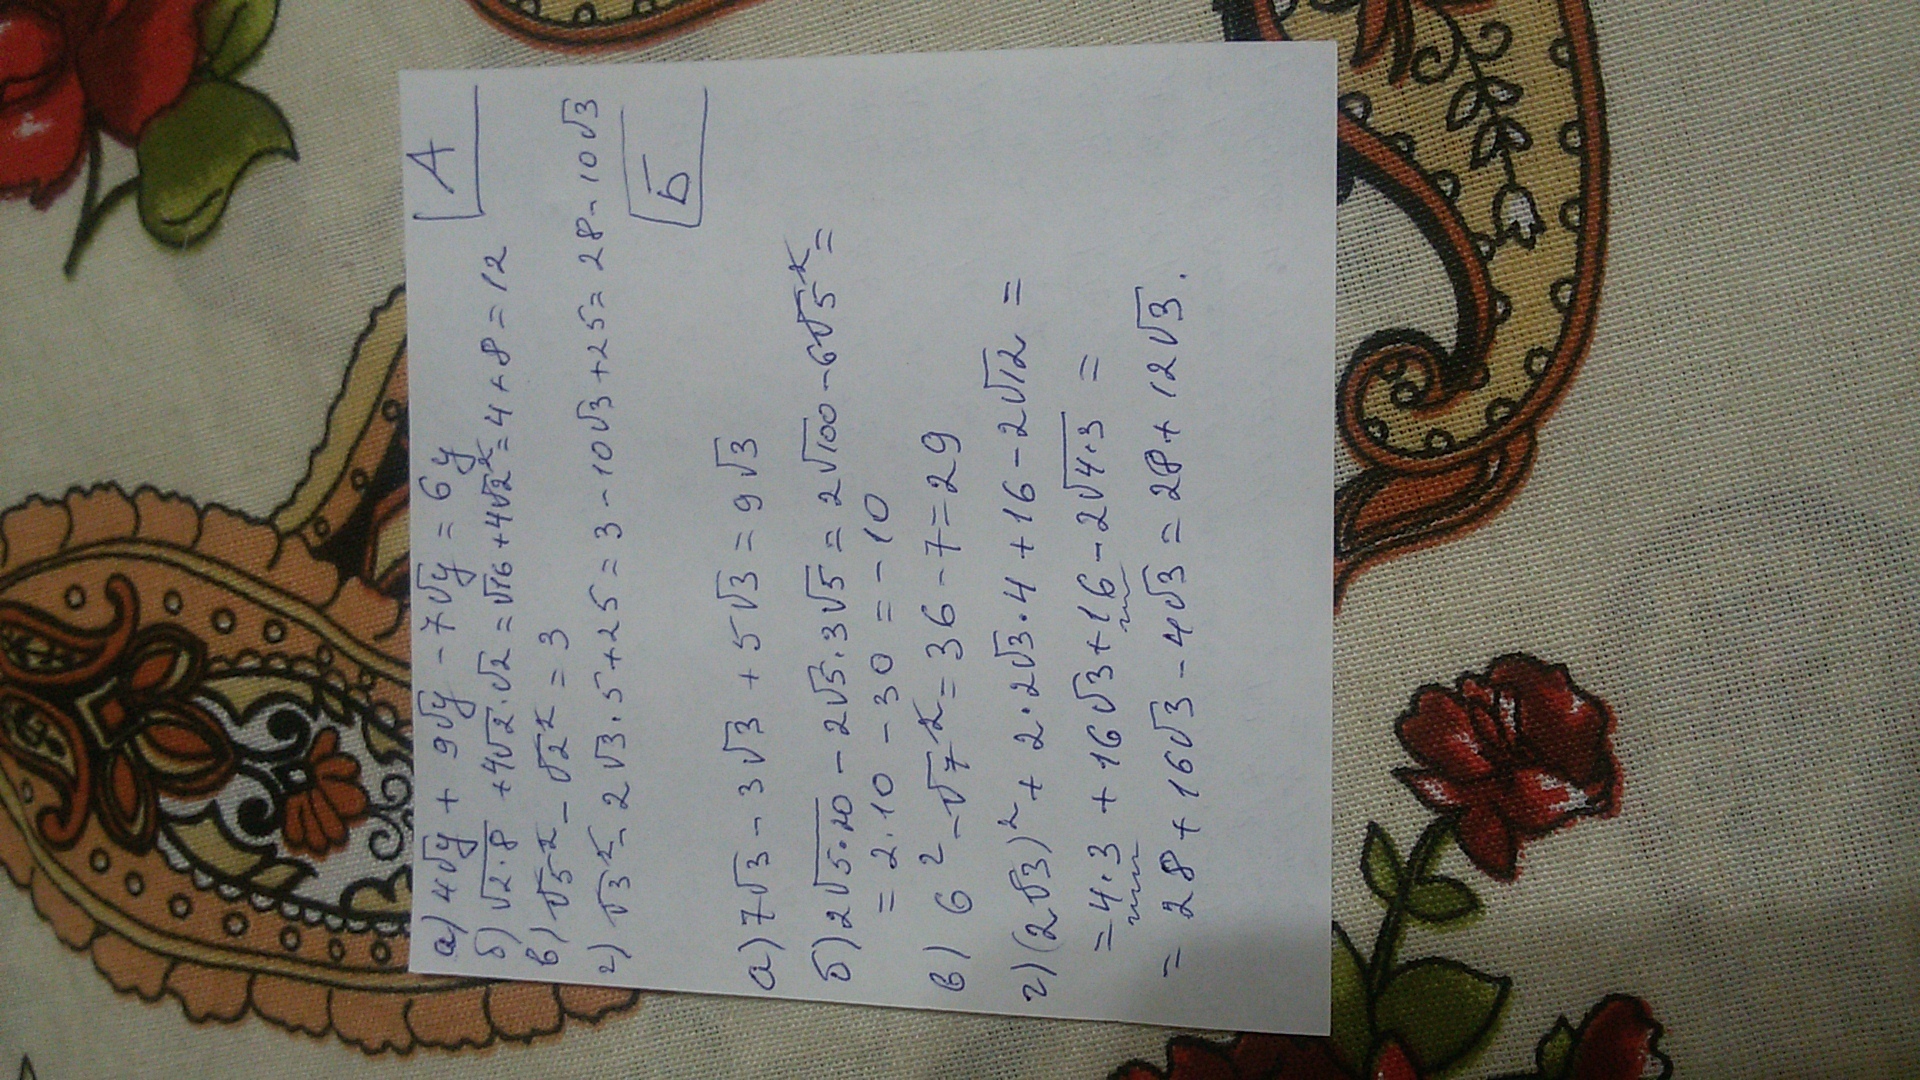 А
а) 4√y + 9√y - 7√y = 6y
б) √2·8 + 4√2·√2 = √16 + 4√2² = 4 + 8 = 12
в) √5² - √2² = 3
г) √3² - 2√3·5 + 25 = 3 - 10√3 + 25 = 28 - 10√3
Б
а) 7√3 - 3√3 + 5√3 = 9√3
б) 2√5·20 - 2√5·3√5 = 2√100 - 6√5² =
= 2·10 - 30 = -10
в) 6² - √7² = 36 - 7 = 29
г) (2√3)² + 2·2√3·4 + 16 - 2√12 =
= 4·3 + 16√3 + 16 - 2√4·3 =
= 28 + 16√3 - 4√3 = 28 + 12√3.